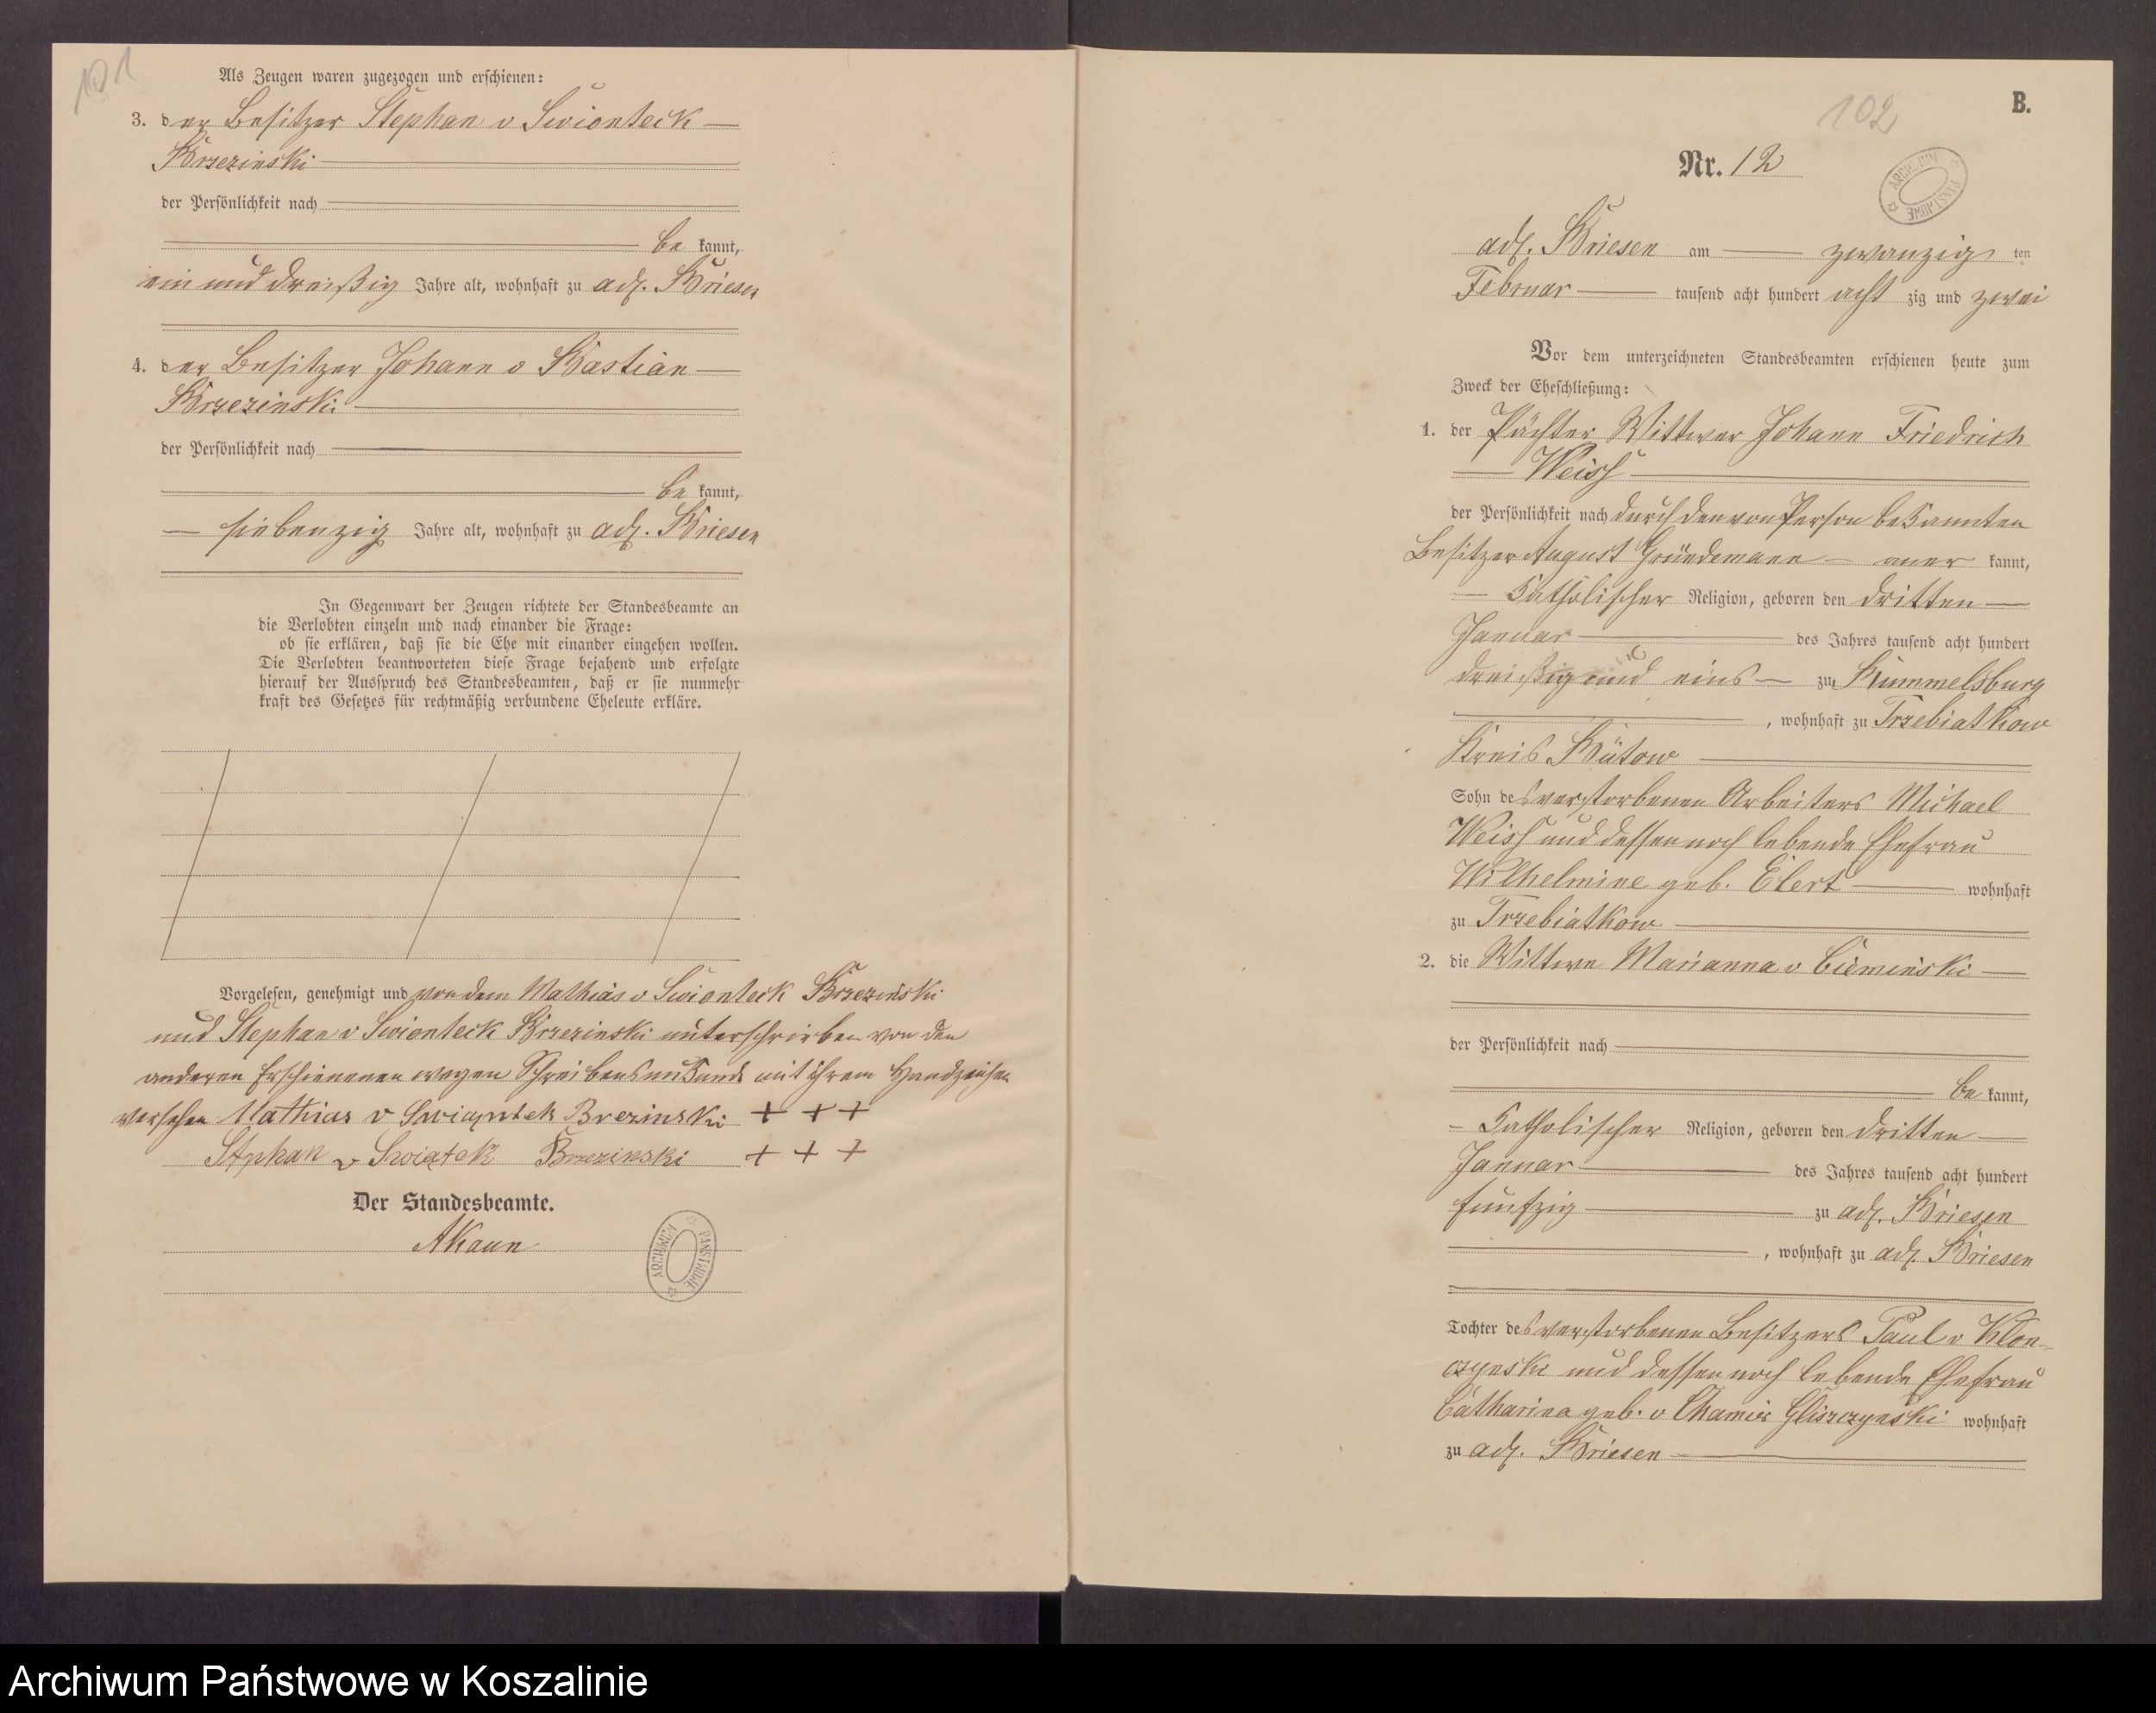 101
Als Zeugen waren zugezogen und erschienen:
3. der Besitzer Stephan v Swionteck
Brzezinski
der Persönlichkeit nach
be kannt,
ein und dreißig Jahre alt, wohnhaft zu adl. Briesen
4. der Besitzer Johann v Bastian
Brzezinski
der Persönlichkeit nach
be kannt,
siebenzig Jahre alt, wohnhaft zu adl. Briesen
In Gegenwart der Zeugen richtete der Standesbeamte an
die Verlobten einzeln und nach einander die Frage:
ob sie erklären, daß sie die Ehe mit einander eingehen wollen.
Die Verlobten beantworteten diese Frage bejahend und erfolgte
hierauf der Ausspruch des Standesbeamten, daß er sie nunmehr
kraft des Gesetzes für rechtmäßig verbundene Eheleute erkläre.
Vorgelesen, genehmigt und von dem Mathias v Swionteck Brzezinski
und Stephan v Swionteck Brzezinski unterschrieben von den
anderen Erschienenen wegen Schreibensunkunde mit ihrem Handzeichen
versehen Mathias v Swiąntek Brezinski + + +
Stephan v Swiątek Brzezinski + + +
Der Standesbeamte.
AKaun
ARCHIWUM PAŃSTWOWE
102
B.
Nr. 12
ARCHIWUM PAŃSTWOWE
adl. Briesen am zwanzig ten
Februar tausend acht hundert acht zig und zwei
Vor dem unterzeichneten Standesbeamten erschienen heute zum
Zweck der Eheschließung:
1. der Pächter Wittwer Johann Friedrich
Weiss
der Persönlichkeit nach durch den von Person bekannten
Besitzer August Gründemann aner kannt,
katholischer Religion, geboren den dritten
Januar des Jahres tausend acht hundert
dreißig und eins zu Rummelsburg
, wohnhaft zu Trzebiatkow
Kreis Bütow
Sohn des verstorbenen Arbeiters Michael
Weiss und dessen noch lebende Ehefrau
Wilhelmine geb. Ebert wohnhaft
zu Trzebiatkow
2. die Wittwe Marianna v Cieminski
der Persönlichkeit nach
be kannt,
katholischer Religion, geboren den dritten
Januar des Jahres tausend acht hundert
funfzig zu adl. Briesen
, wohnhaft zu adl. Briesen
Tochter des verstorbenen Besitzers Paul v Klon-
czynski und dessen noch lebende Ehefrau
Catharina geb. v Chamier Gliszczynski wohnhaft
zu adl. Briesen
Archiwum Państwowe w Koszalinie